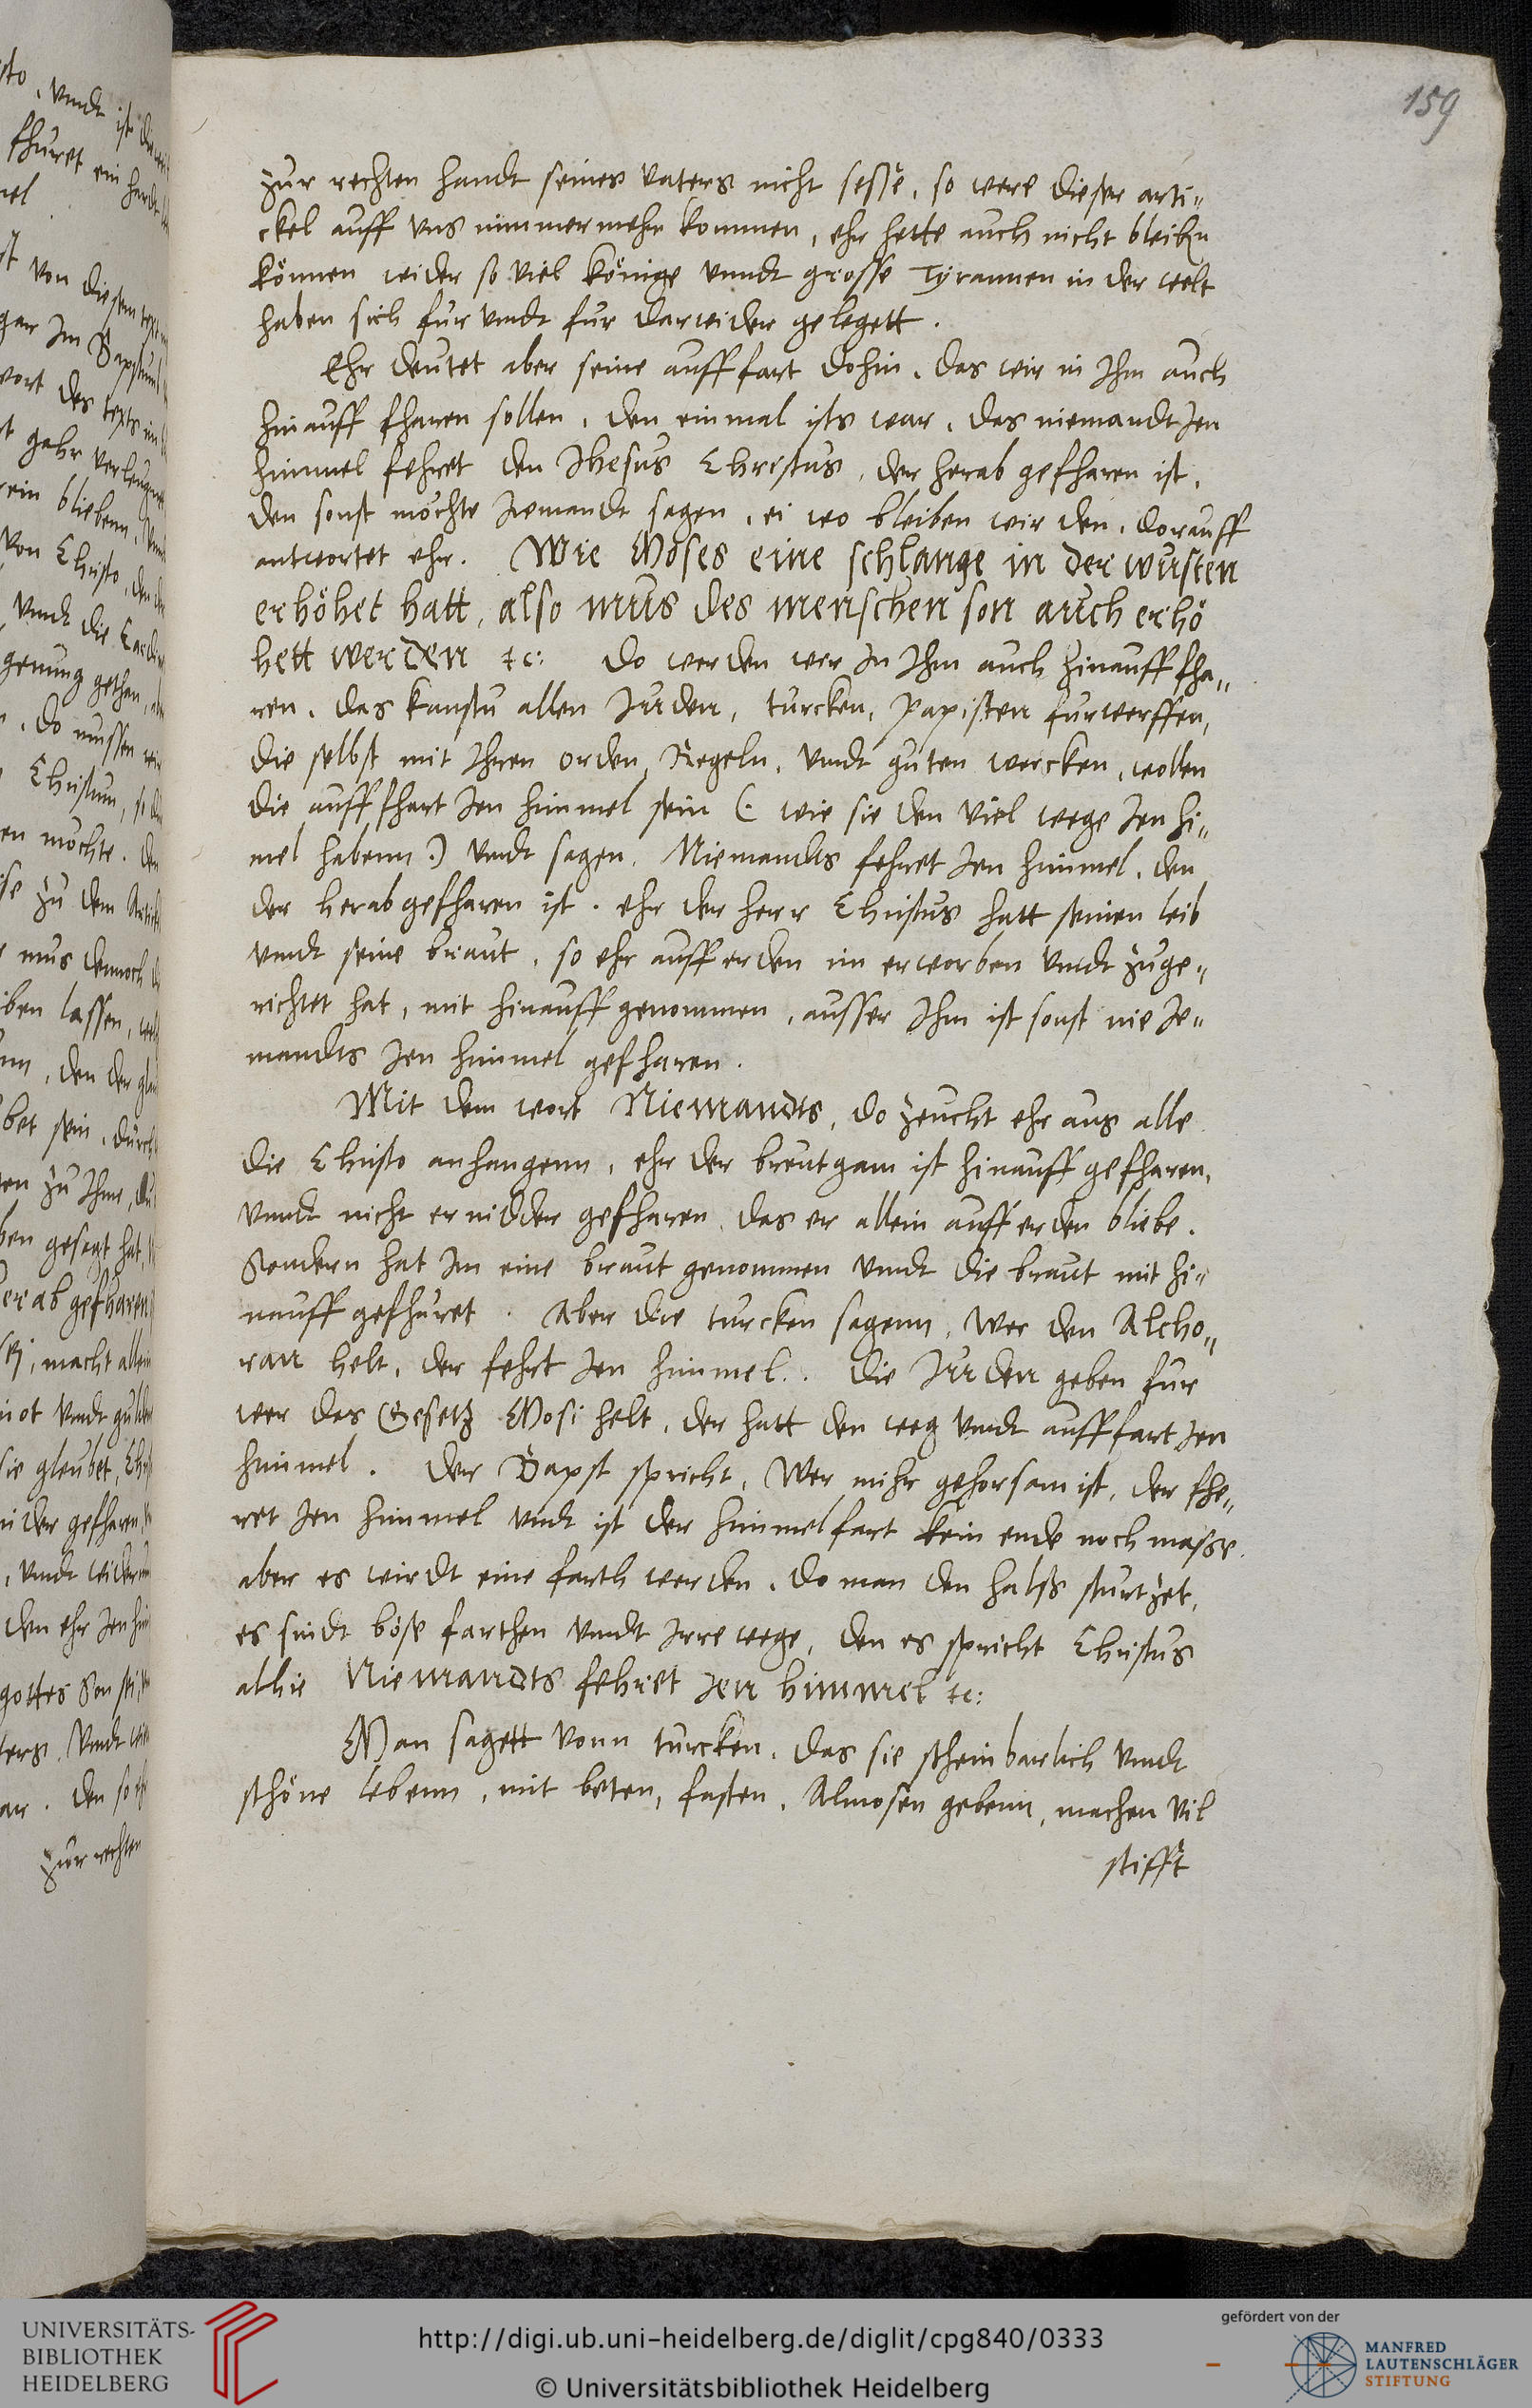 159
zur rechten handt seines vaters nicht sesse, so were dieser arti„
ckel auff uns nimmermehr kommen, ehr hette auch nicht bleiben
können wider so viel könige unndt grosse Tyrannen in der welt
haben sich fur undt fur darwider gelegett.
Ehr deutet aber seine auffart dohin, das wir in Ihm auch
hinauff fharen sollen, den einmal ists war, das niemandt Jen
himmel fehret den Jhesus Christus, der herab gefharen ist,
den sonst möchte Jemandt sagen, ei wo bleiben wir den, dorauff
antwortet ehr. Wie Moses eine schlange in der wusten
erhöhet hatt, also mus des menschen son auch erhö
hett werden etc: Do werden wir In Ihm auch hinauff fha„
ren, das kanstu allen Juden, turcken, Papisten furwerffen,
die selbst mit Ihren orden, Regeln, undt guten wercken, wollen
die auffhart Jen himmel sein (: wie sie den viel wege Jen hi„
mel habenn :) undt sagen, Niemandts fehret Jen himmel, den
der herab gefharen ist. ehr der herr Christus hatt seinen leib
undt seine braut, so ehr auff erden im erworben undt zuge„
richtet hat, mit hinauff genommen, ausser Ihm ist sonst nie Je„
mandts Jen himmel gefharen.
Mit dem wort Niemandts, do zeucht ehr aus alle
die Christo anhangenn, ehr der breutgam ist hinauff gefharen,
unndt nicht ernidder gefharen, das er allein auff erden bliebe.
Sondern hat Im eine braut genommen undt die braut mit hi„
nauff gefhuret. Aber die turcken sagenn, Wer den Alcho„
ran helt, der fehrt Jen himmel. Die Juden geben fur
wer das Gesetz Mosi helt, der hatt den weg undt auffart Jen
himmel. Der Bapst spricht, Wer mihr gehorsam ist, der fhe„
ret Jen himmel undt ist der himmelfart kein ende noch masse.
aber es wirdt eine farth werden, do man den halss sturtzet,
es sindt böse farthen undt Irrewege, den es spricht Christus
alhie Niemandts fehret Jen himmel etc:
Man sagett vonn turcken, das sie scheinbarlich undt
schöne lebenn, mit beten, fasten, Almosen gebenn, machen vil
stifft
UNIVERSITÄTS-
BIBLIOTHEK
HEIDELBERG
http://digi.ub.uni-heidelberg.de/diglit/cpg840/0333
© Universitätsbibliothek Heidelberg
gefördert von der
MANFRED
LAUTENSCHLÄGER
STIFTUNG